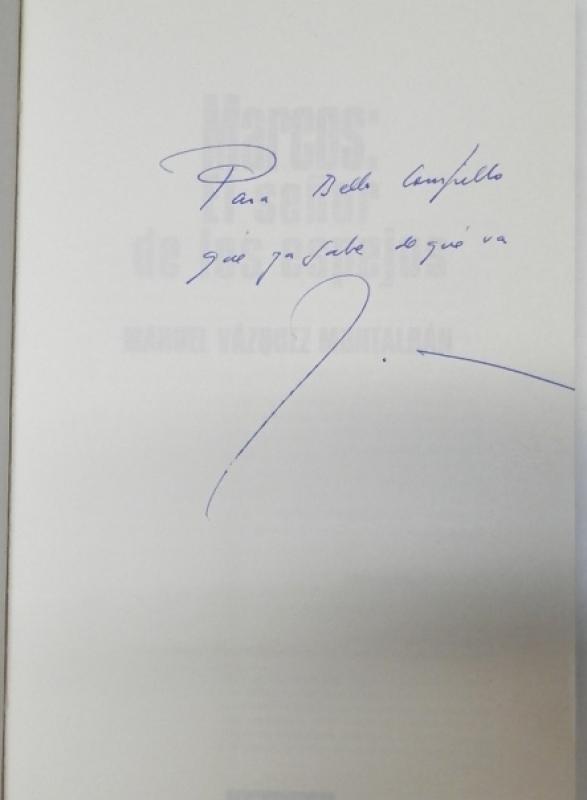 Marcos:
El señor
de los espejos
MANUEL VÁZQUEZ MONTALBÁN
Para Bello Campello
que ya sabe de qué va